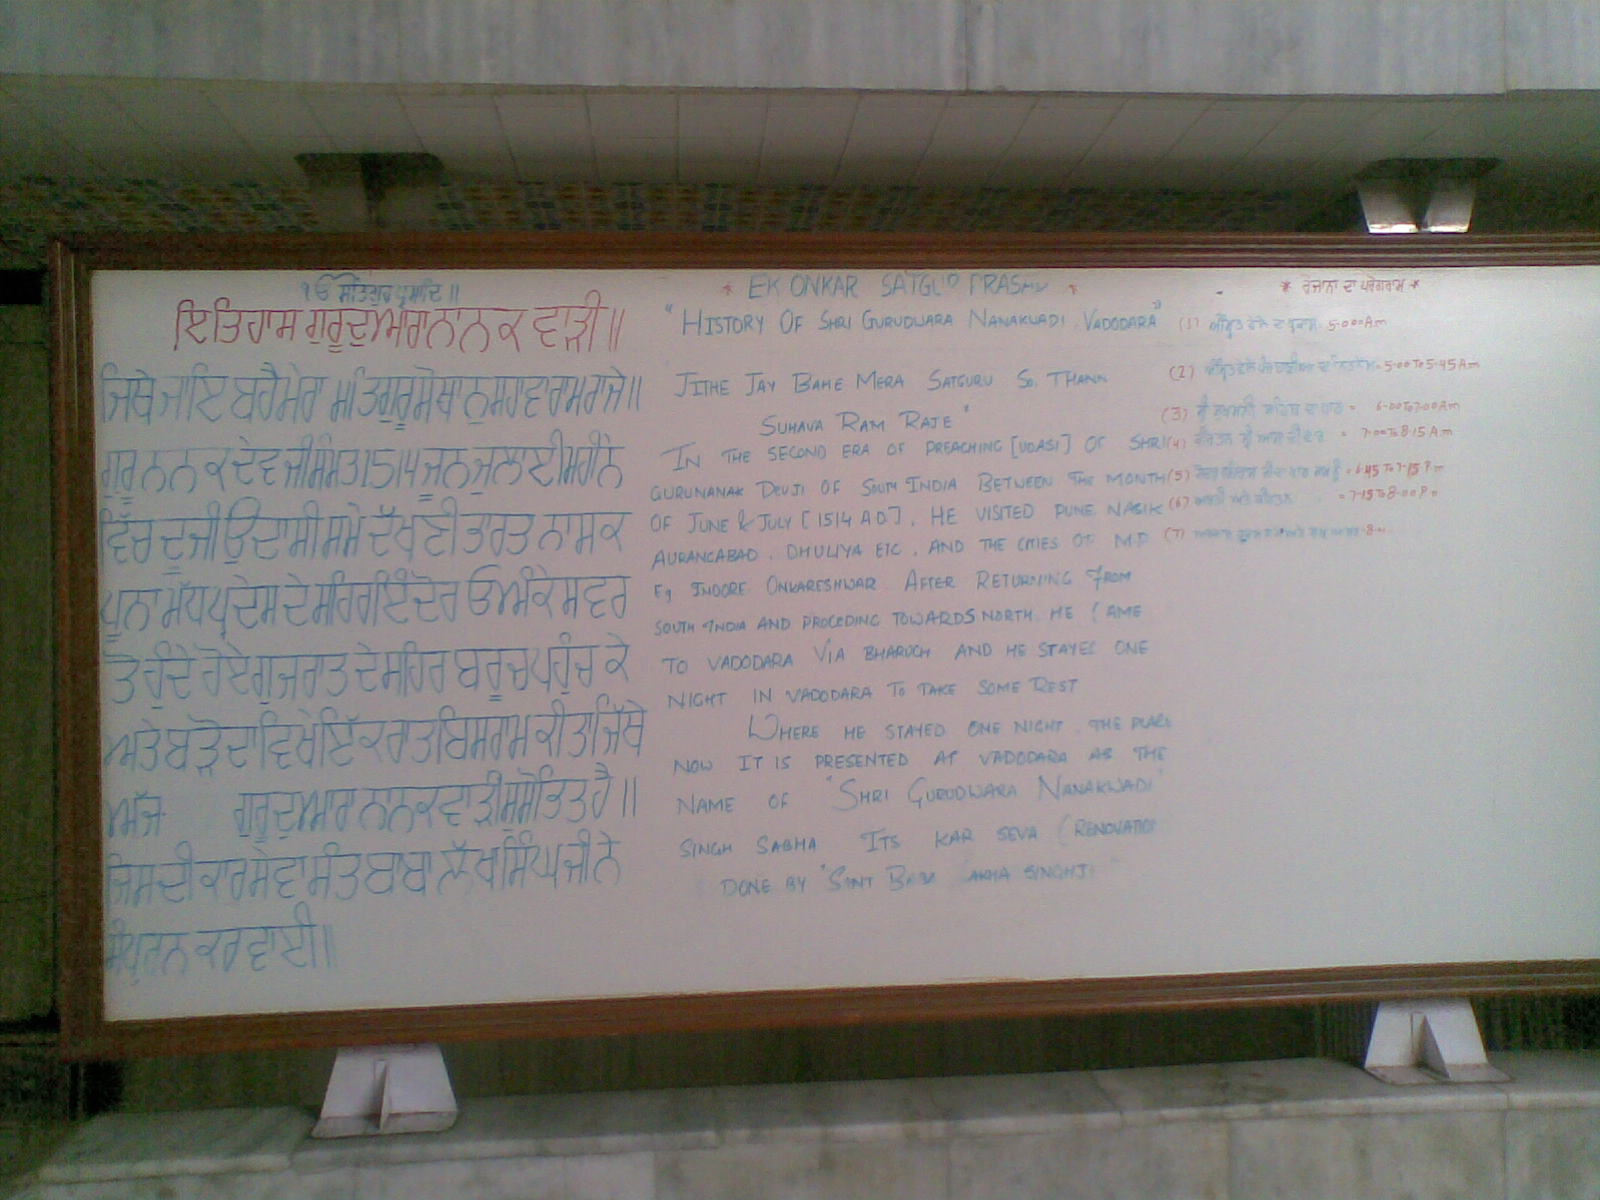 ੧ੳ ਸਤਿਗੁਰ ਪ੍ਰਸਾਦਿ॥
ਇਤਿਹਾਸ ਗੁਰੂਦੁਆਰਾ ਨਾਨਕ ਵਾੜੀ॥
ਜਿਥੇ ਜਾਇ ਬਹੈ ਮੇਰਾ ਸਤਿਗੁਰੂ ਸੋ ਥਾਨੁ ਸੁਹਾਵਾ ਰਾਮ ਰਾਜੇ॥
ਗੁਰੂ ਨਾਨਕ ਦੇਵ ਜੀ ਸੰਮਤ 1514 ਜੂਨ ਜੁਲਾਈ ਮਹੀਨੇ
ਵਿੱਚ ਦੂਜੀ ਉਦਾਸੀ ਸਮੇਂ ਦੱਖਣੀ ਭਾਰਤ ਨਾਸਕ
ਪੂਨਾ ਮੱਧ ਪ੍ਰਦੇਸ ਦੇ ਸਹਿਰ ਇੰਦੋਰ ਓਅੰਕੇਸਵਰ
ਤੋ ਹੁੰਦੇ ਹੋਏ ਗੁਜਰਾਤ ਦੇ ਸਹਿਰ ਬਰੂਚ ਪਹੁੰਚ ਕੇ
ਅਤੇ ਬੜੋਦਾ ਵਿਖੇ ਇੱਕ ਰਾਤ ਬਿਸਰਾਮ ਕੀਤਾ ਜਿੱਥੇ
ਅੱਜ ਗੁਰੂਦੁਆਰਾ ਨਾਨਕ ਵਾੜੀ ਸੁਸੋਭਿਤ ਹੈ॥
ਜਿਸ ਦੀ ਕਾਰ ਸੇਵਾ ਸੰਤ ਬਾਬਾ ਲੱਖਾ ਸਿੰਘ ਜੀ ਨੇ
ਸੰਪੂਰਨ ਕਰਵਾਈ॥
* EK ONKAR SATGU PRASHU *
"HISTORY OF SHRI GURUDWARA NANAKWADI VADODARA"
JITHE JAY BAHE MERA SATGURU SO THANN
SUHAVA RAM RAJE"
IN THE SECOND ERA OF PREACHING [UDASI] OF SHRI
GURUNANAK DEVJI OF SOUTH INDIA BETWEEN THE MONTH
OF JUNE & JULY [1514 AD], HE VISITED PUNE NASIK
AURANGABAD, DHULIYA ETC, AND THE CITIES OF M.P
Eg INDORE ONKARESHWAR. AFTER RETURNING FROM
SOUTH INDIA AND PROCEDING TOWARDS NORTH. HE CAME
TO VADODARA VIA BHARUCH AND HE STAYED ONE
NIGHT IN VADODARA TO TAKE SOME REST
WHERE HE STAYED ONE NIGHT. THE PLACE
NOW IT IS PRESENTED AT VADODARA AS THE
NAME OF "SHRI GURUDWARA NANAKWADI"
SINGH SABHA ITS KAR SEVA (RENOVATION
DONE BY "SANT BABA LAKHA SINGHJI
* ਰੋਜਾਨਾ ਦਾ ਪਰੋਗਰਾਮ *
(1) 5-000 Am
(2) 5-00 To 5-45 Am
(3) ਸ੍ਰੀ ਸੁਖਮਨੀ ਸਾਹਿਬ ਦਾ ਪਾਠ = 6-00 To 7-00 Am
(4) ਕੀਰਤਨ ਸ੍ਰੀ ਆਸਾ ਦੀ ਵਾਰ = 7-00 To 8-15 A.m
(5) = 6-45 To 7-15 P.m
(6) ਆਰਤੀ ਅਤੇ ਕੀਰਤਨ = 7-15 To 8-00 P.m
(7)